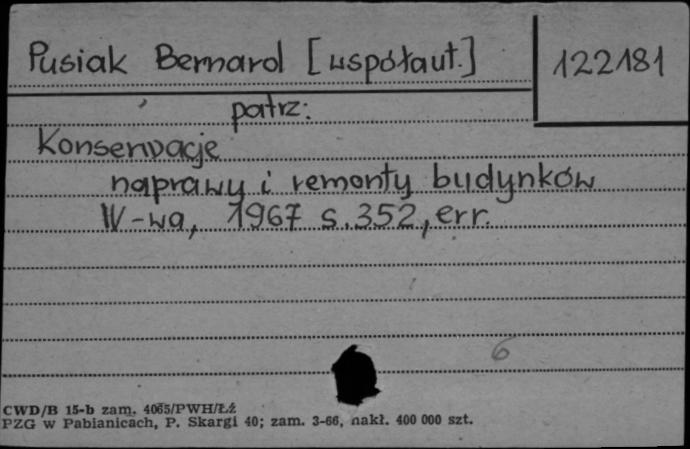 Pusiak Bernard [współaut.]
122181
patrz:
Konserwacje
naprawy i remonty budynków
W-wa, 1967 s. 352, err.
6
CWD/B 15-b zam. 4065/PWH/Łź
PZG w Pabianicach, P. Skargi 40; zam. 3-66, nakł. 400 000 szt.